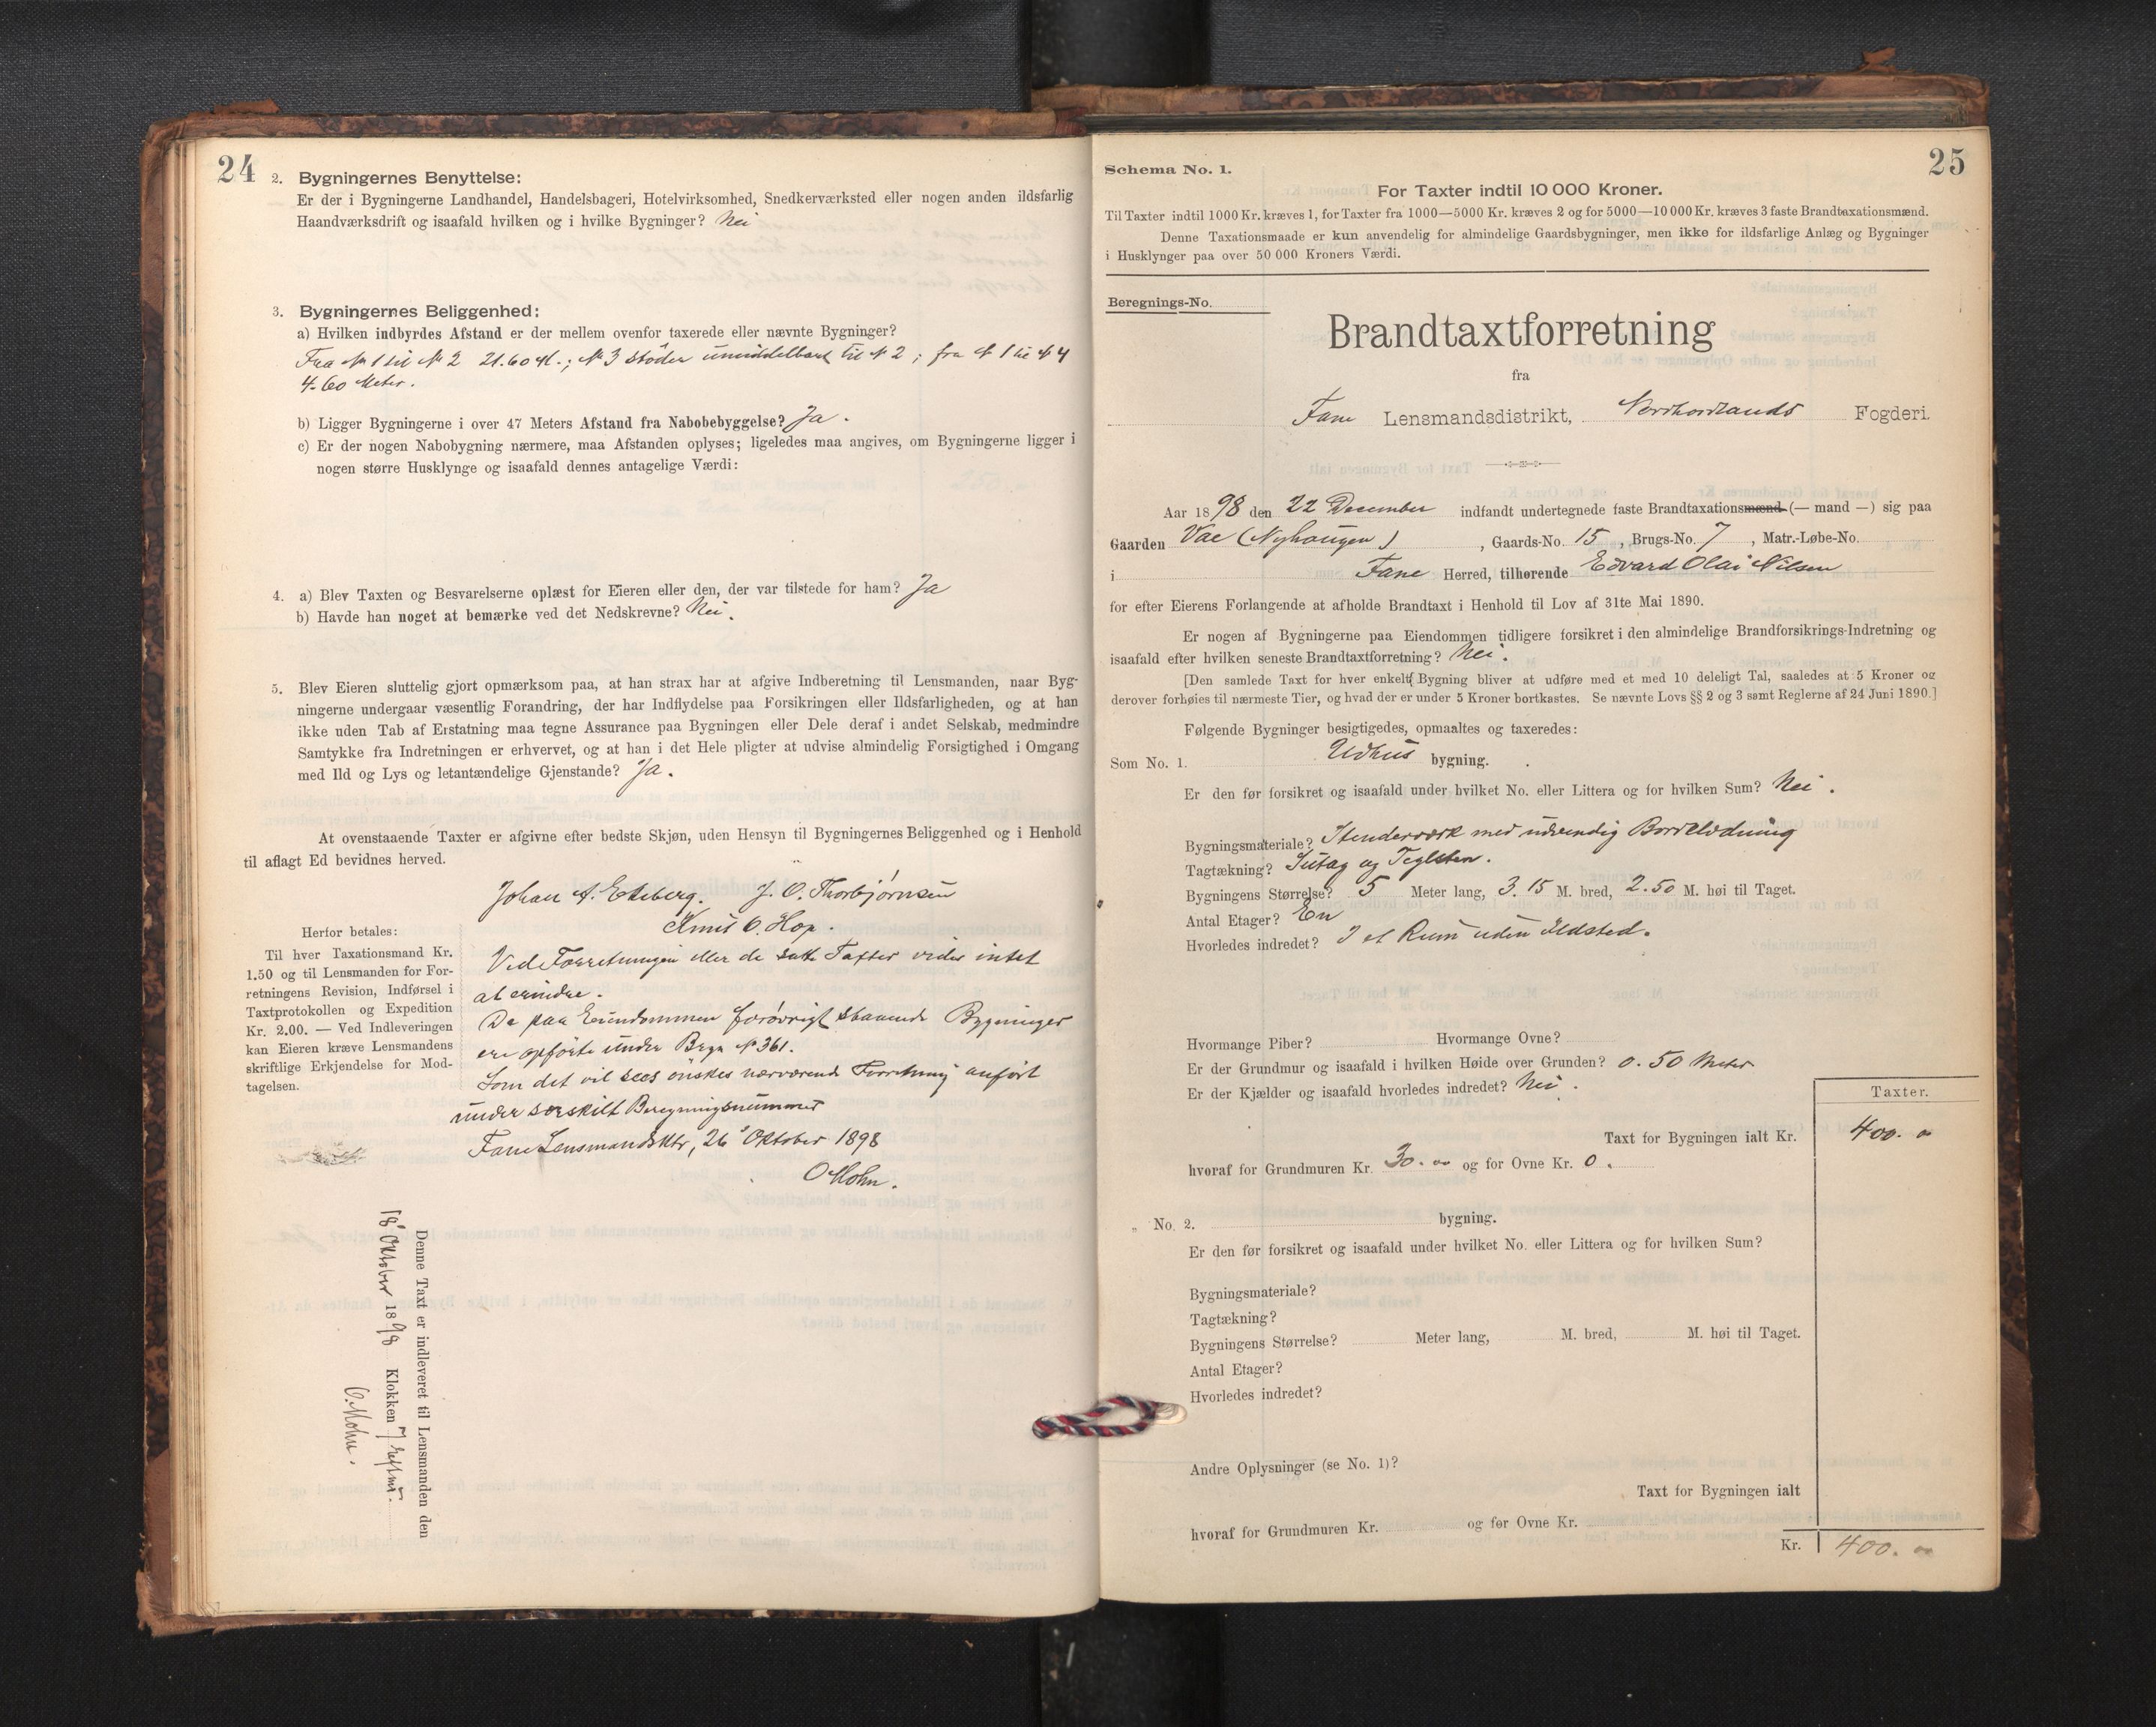 24
2. Bygningernes Benyttelse:
Er der i Bygningerne Landhandel, Handelsbageri, Hotelvirksomhed, Snedkerværksted eller nogen anden ildsfarlig
Haandværksdrift og isaafald hvilken og i hvilke Bygninger? Nei
3. Bygningernes Beliggenhed:
a) Hvilken indbyrdes Afstand er der mellem ovenfor taxerede eller nævnte Bygninger?
Fra No 1 til No 2 21.60 M.; No 3 støder umiddelbart til No 2; fra No 1 til No 4
4.60 Meter.
b) Ligger Bygningerne i over 47 Meters Afstand fra Nabobebyggelse? Ja.
c) Er der nogen Nabobygning nærmere, maa Afstanden oplyses; ligeledes maa angives, om Bygningerne ligger i
nogen større Husklynge og isaafald dennes antagelige Værdi:
4. a) Blev Taxten og Besvarelserne oplæst for Eieren eller den, der var tilstede for ham? Ja
b) Havde han noget at bemærke ved det Nedskrevne? Nei.
5. Blev Eieren sluttelig gjort opmærksom paa, at han strax har at afgive Indberetning til Lensmanden, naar Byg-
ningerne undergaar væsentlig Forandring, der har Indflydelse paa Forsikringen eller Ildsfarligheden, og at han
ikke uden Tab af Erstatning maa tegne Assurance paa Bygningen eller Dele deraf i andet Selskab, medmindre
Samtykke fra Indretningen er erhvervet, og at han i det Hele pligter at udvise almindelig Forsigtighed i Omgang
med Ild og Lys og letantændelige Gjenstande? Ja.
At ovenstaaende Taxter er afgivne efter bedste Skjøn, uden Hensyn til Bygningernes Beliggenhed og i Henhold
til aflagt Ed bevidnes herved.
Johan A. J. O. Thorbjørnsen
Knut O. Hop.
Herfor betales:
Til hver Taxationsmand Kr.
1.50 og til Lensmanden for For-
retningens Revision, Indførsel i
Taxtprotokollen og Expedition
Kr. 2.00. — Ved Indleveringen
kan Eieren kræve Lensmandens
skriftlige Erkjendelse for Mod-
tagelsen.
Ved Forretningen eller de satte Taxter vides intet
at erindre.
De paa Eiendommen forøvrigt staaende Bygninger
ere opførte under Bergn No 361.
Som det vil sees ønskes nærværende Forretning anført
under særskilt Beregningsnummer
Fane Lensmandsktr, 26 Oktober 1898
O Mohn.
Denne Taxt er indleveret til Lensmanden den
18 Oktober 1898 Klokken 7 eftm.
O. Mohn.
25
Schema No. 1.
For Taxter indtil 10 000 Kroner.
Til Taxter indtil 1000 Kr. kræves 1, for Taxter fra 1000—5000 Kr. kræves 2 og for 5000—10 000 Kr. kræves 3 faste Brandtaxationsmænd.
Denne Taxationsmaade er kun anvendelig for almindelige Gaardsbygninger, men ikke for ildsfarlige Anlæg og Bygninger
i Husklynger paa over 50 000 Kroners Værdi.
Beregnings-No.
Brandtaxtforretning
fra
Fane Lensmandsdistrikt, Nordhordlands Fogderi.
Aar 1898 den 22 December indfandt undertegnede faste Brandtaxationsmænd (— mand —) sig paa
Gaarden Vae (Nyhaugen), Gaards-No. 15, Brugs-No. 7, Matr.-Løbe-No.
i Fane Herred, tilhørende Edvard Olai Nilsen
for efter Eierens Forlangende at afholde Brandtaxt i Henhold til Lov af 31te Mai 1890.
Er nogen af Bygningerne paa Eiendommen tidligere forsikret i den almindelige Brandforsikrings-Indretning og
isaafald efter hvilken seneste Brandtaxtforretning? Nei.
[Den samlede Taxt for hver enkelt Bygning bliver at udføre med et med 10 deleligt Tal, saaledes at 5 Kroner og
derover forhøies til nærmeste Tier, og hvad der er under 5 Kroner bortkastes. Se nævnte Lovs §§ 2 og 3 samt Reglerne af 24 Juni 1890.]
Følgende Bygninger besigtigedes, opmaaltes og taxeredes:
Som No. 1. Udhus bygning.
Er den før forsikret og isaafald under hvilket No. eller Littera og for hvilken Sum? Nei.
Bygningsmateriale? Stenderværk med udvendig Bordklædning
Tagtækning? Sutag og Teglsten.
Bygningens Størrelse? 5 Meter lang, 3.15 M. bred, 2.50 M. høi til Taget.
Antal Etager? En
Hvorledes indredet? I et Rum uden Ildsted.
Hvormange Piber? Hvormange Ovne?
Er der Grundmur og isaafald i hvilken Høide over Grunden? 0.50 Meter
Er der Kjælder og isaafald hvorledes indredet? Nei.
Taxter.
Taxt for Bygningen ialt Kr. 400.00
hvoraf for Grundmuren Kr. 30.00 og for Ovne Kr. 0.
„ No. 2. bygning.
Er den før forsikret og isaafald under hvilket No. eller Littera og for hvilken Sum?
Bygningsmateriale?
Tagtækning?
Bygningens Størrelse? Meter lang, M. bred, M. høi til Taget.
Antal Etager?
Hvorledes indredet?
Andre Oplysninger (se No. 1)?
Taxt for Bygningen ialt
hvoraf for Grundmuren Kr. og for Ovne Kr.
Kr. 400.00